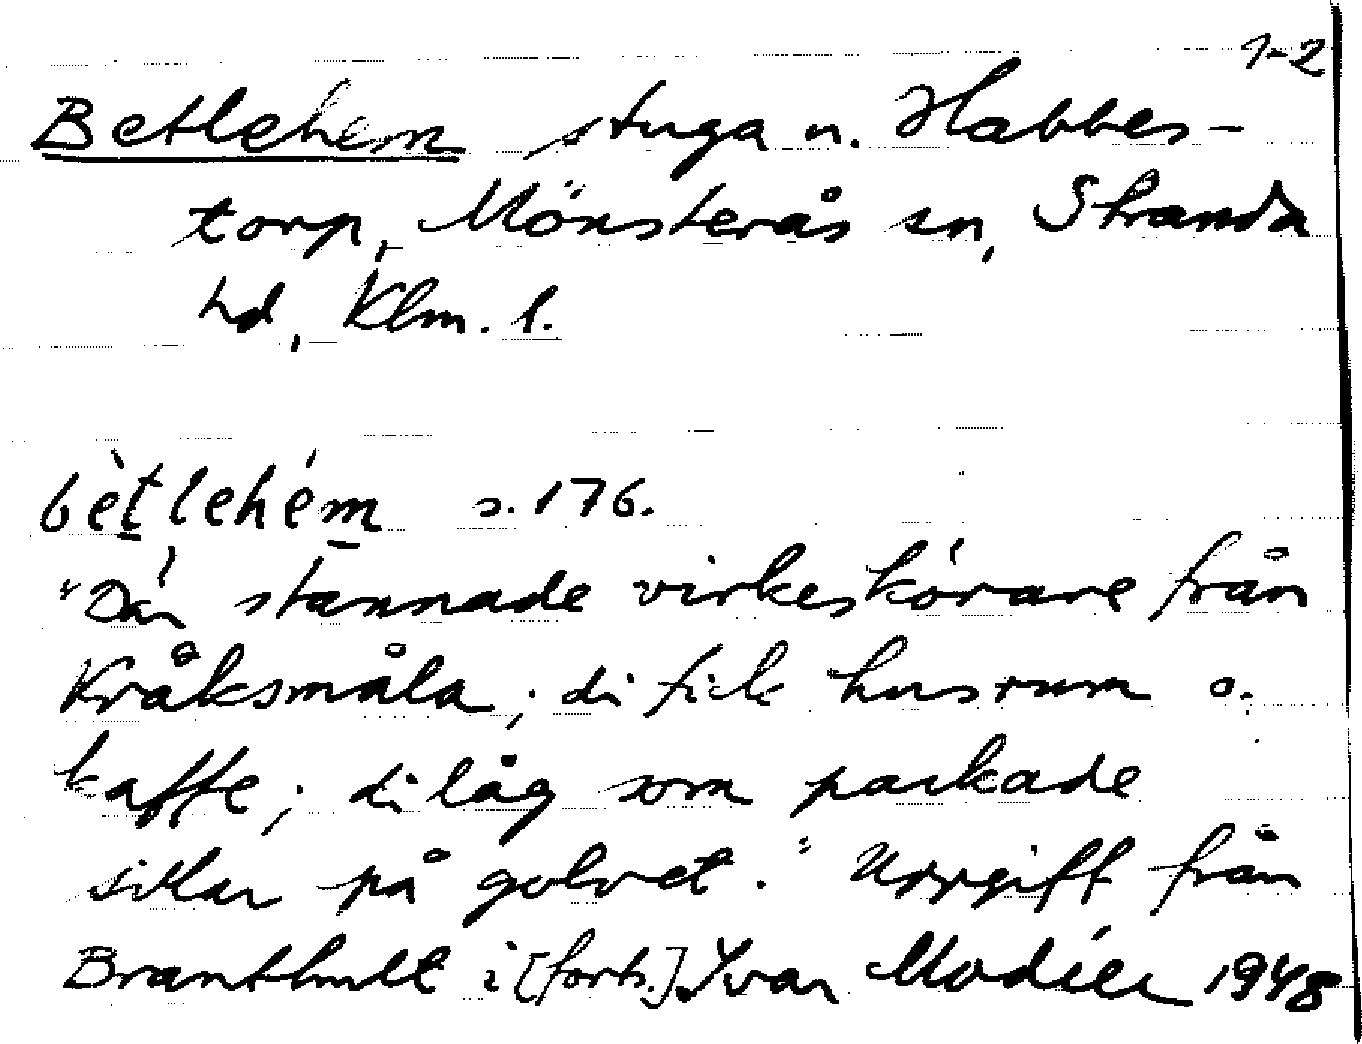 1-2
Betlehem stuga n. Habbes-
torp, Mönsterås sn, Stranda
hd, Klm. l.
bètlehém s. 176.
"Där stannade virkeskörare från
Kråksmåla; di fick husrum o.
kaffe; di låg som packade
sillar på golvet." Uppgift från
Branthult i [forts.] Ivar Modéer 1948